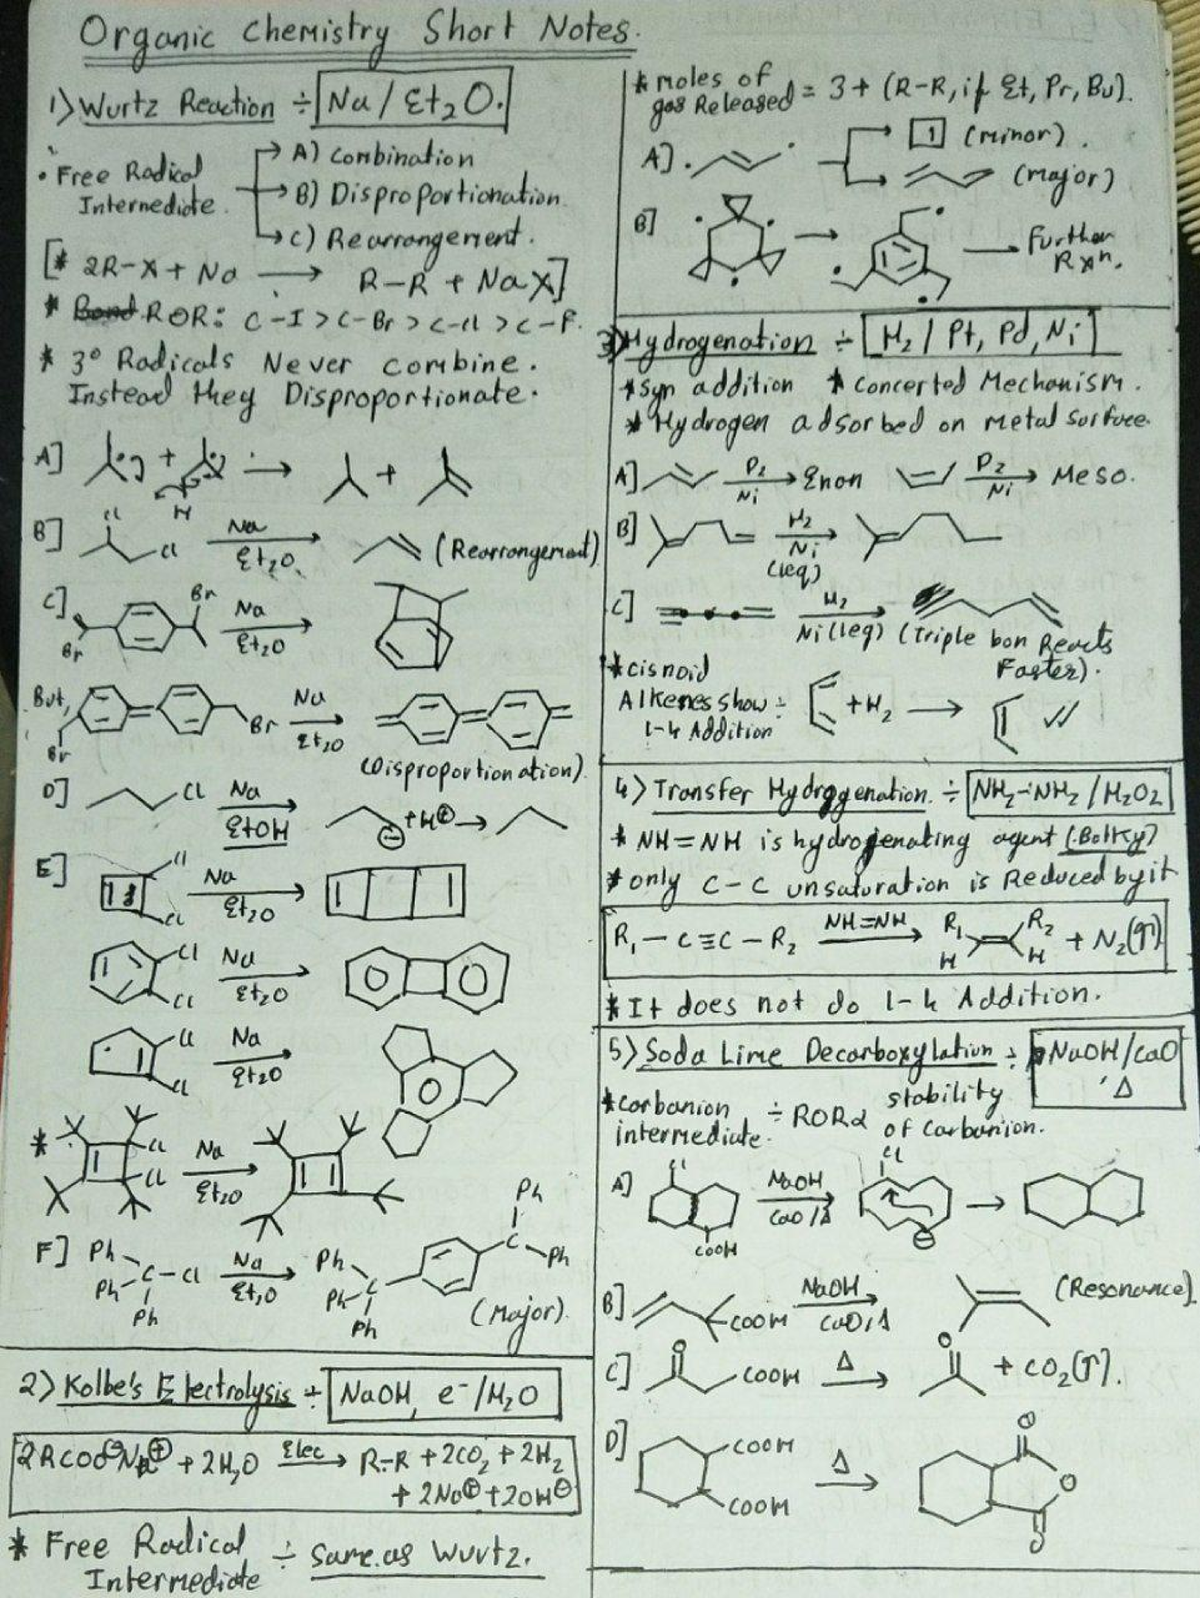 Organic Chemistry Short Notes.
1) Wurtz Reaction ÷ Na / Et2O.
• Free Radical Intermediate
A) Combination
B) Disproportionation
C) Rearrangement.
[* 2R-X + Na → R-R + NaX]
* ROR: C-I > C-Br > C-Cl > C-F.
* 3° Radicals Never combine.
Instead they Disproportionate.
A] + → +
H
B] Cl Cl Na Et2O → (Rearrangement)
C] Br Br Na Et2O →
But, Br Br Na Et2O →
(Disproportionation)
D] Cl Na EtOH → ⊖ + H⊕ →
E] Cl Cl Na Et2O →
Cl Cl Na Et2O →
Cl Cl Na Et2O →
* Cl Cl Na Et2O →
F] Ph Ph Ph C-Cl Na Et2O → Ph Ph Ph C Ph C Ph
(Major)
2) Kolbe's Electrolysis ÷ NaOH, e⁻/H2O
2RCOO⊖Na⊕ + 2H2O Elec → R-R + 2CO2 + 2H2
+ 2Na⊕ + 2OH⊖
* Free Radical Intermediate ÷ same as Wurtz.
* moles of gas Released = 3 + (R-R, if Et, Pr, Bu).
A] → 1 (minor).
→ (major)
B] → → Further Rxn.
3) Hydrogenation ÷ H2 / Pt, Pd, Ni
* syn addition * Concerted Mechanism.
* Hydrogen adsorbed on metal surface.
A] D2 Ni → Enan D2 Ni → Meso.
B] H2 Ni (1eq) →
C] H2 Ni (1eq) → (Triple bon Reacts Faster).
* cisnoid
Alkenes show ÷ + H2 →
1-4 Addition
4) Transfer Hydrogenation ÷ NH2-NH2 / H2O2
* NH=NH is hydrogenating agent (Bulky)
* only C-C unsaturation is Reduced by it
R1 - C≡C - R2 NH=NH → R1 R2 H H + N2(g↑)
* It does not do 1-4 Addition.
5) Soda Lime Decarboxylation ÷ NaOH/CaO, Δ
* carbanion intermediate ÷ ROR α stability of Carbanion.
A] Cl COOH NaOH CaO/Δ → Cl ⊖ →
B] COOH NaOH CaO, Δ → (Resonance).
C] O COOH Δ → O + CO2(↑).
D] COOH COOH Δ → O O O